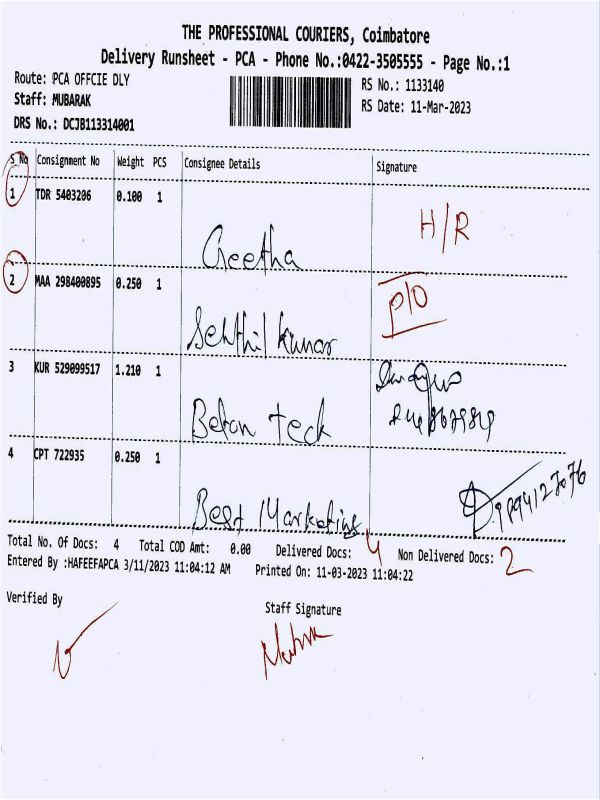 THE PROFESSIONAL COURIERS, Coimbatore
Delivery Runsheet - PCA - Phone No.:0422-3505555 - Page No.:1
Route: PCA OFFCIE DLY
RS No.: 1133140
Staff: MUBARAK
RS Date: 11-Mar-2023
DRS No.: DCJB113314001
S_No Consignment No Weight PCS Consignee Details Signature
1 TDR 5403206 0.100 1
H/R
Geetha
2 MAA 298400895 0.250 1
P/O
Senthil kumar
3 KUR 529099517 1.210 1
Beton Teck
4 CPT 722935 0.250 1
9894127076
Best Marketing
Total No. Of Docs: 4 Total COD Amt: 0.00 Delivered Docs: 4 Non Delivered Docs: 2
Entered By :HAFEEFAPCA 3/11/2023 11:04:12 AM Printed On: 11-03-2023 11:04:22
Verified By
Staff Signature